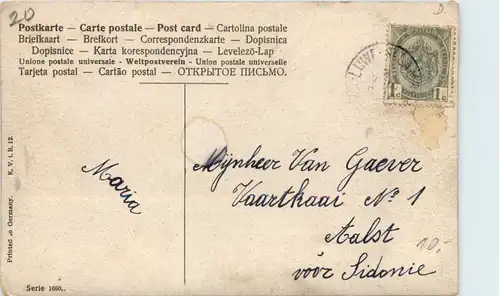 20
D
Postkarte — Carte postale — Post card — Cartolina postale
Briefkaart — Brefkort — Correspondenzkarte — Dopisnica
Dopisnice — Karta korespondencyjna — Levelező-Lap
Unione postale universale - Weltpostverein - Union postale universelle
Tarjeta postal — Cartão postal — ОТКРЫТОЕ ПИСЬМО.
1c 1c
Maria
Mijnheer Van Gaever
Vaartkaai No 1
Aalst
vóór Sidonie
10.-
Printed in Germany.
K. V. i. B. 12.
Serie 1660.